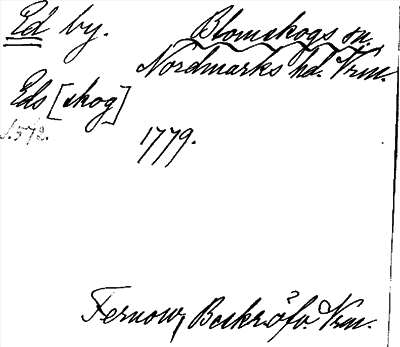 Ed by.
Blomskogs sn.
Nordmarks hd. Vrm.
Eds [skog]
s. 572.
1779.
Fernow, Beskrifv. Vrm.